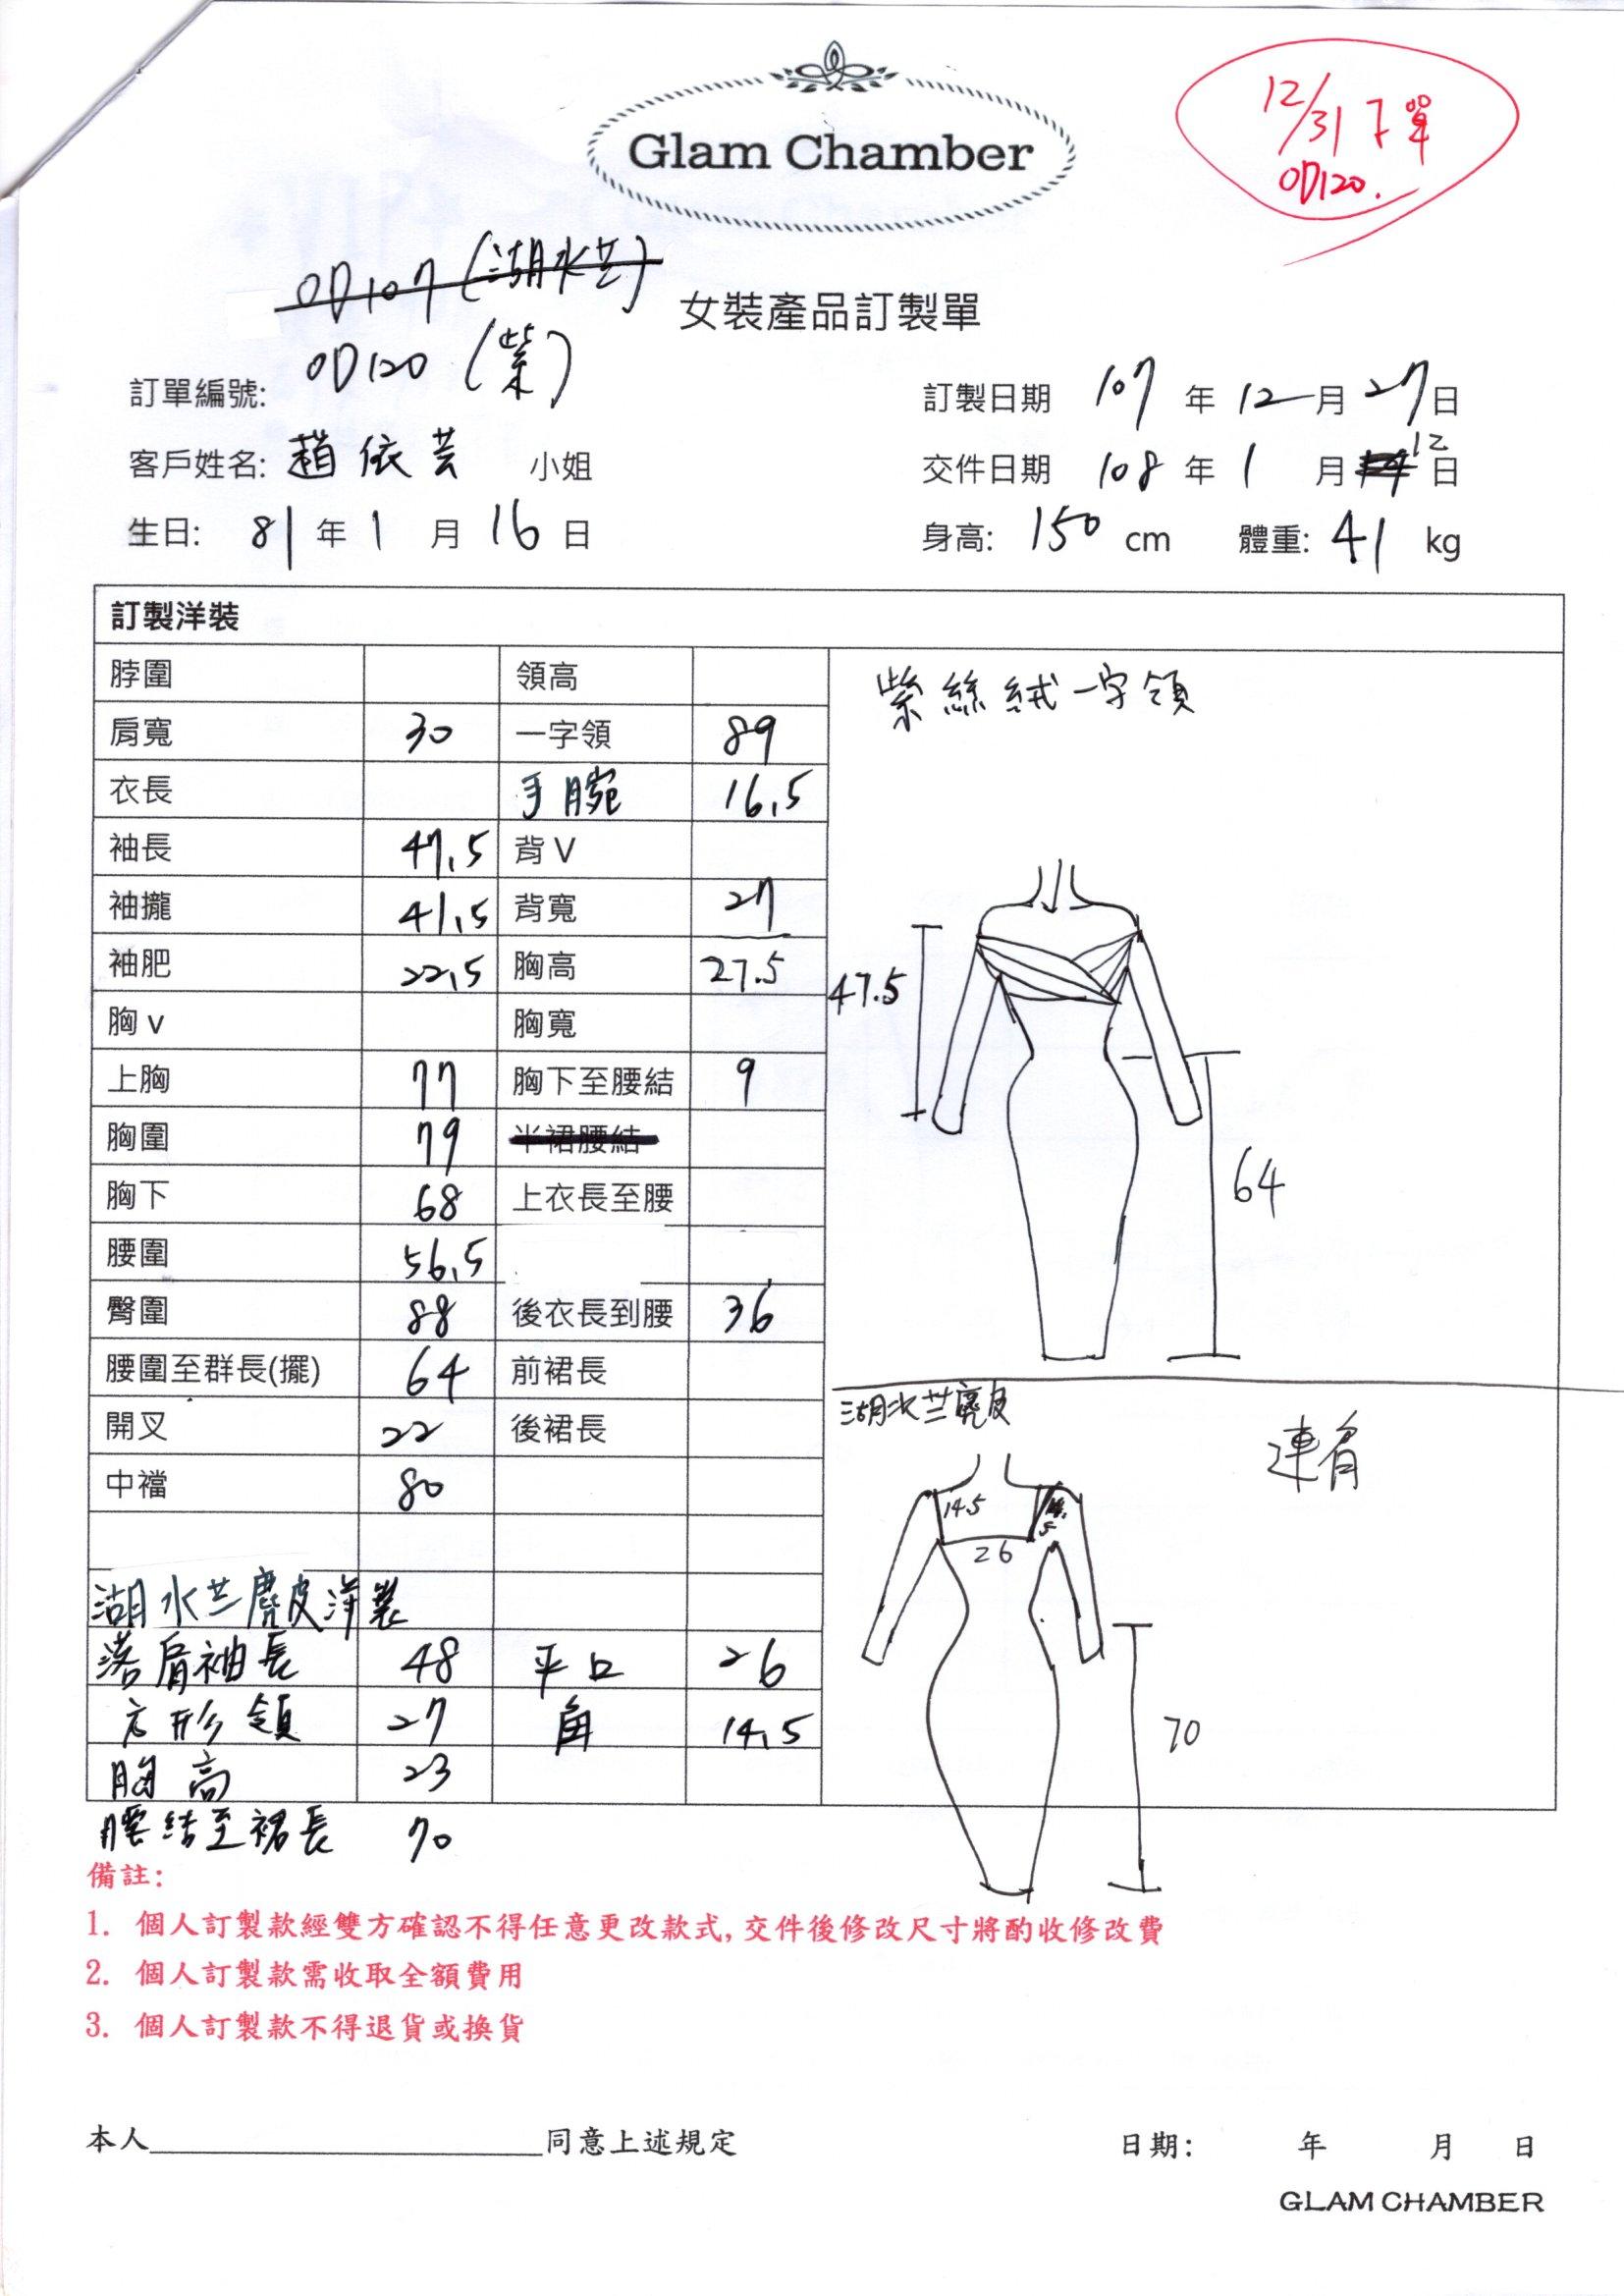 Glam Chamber
12/31下單
OD120.
OD107(湖水芸)
女裝產品訂製單
訂單編號: OD120 (紫)
訂製日期 107 年 12 月 27 日
客戶姓名: 趙依芸 小姐
交件日期 108 年 1 月 12 日
生日: 81 年 1 月 16 日
身高: 150 cm 體重: 41 kg
訂製洋裝
脖圍 領高
紫絲絨一字領
肩寬 30 一字領 89
衣長 手腕 16.5
袖長 47.5 背V
袖攏 41.5 背寬 27
袖肥 22.5 胸高 27.5
47.5
胸v 胸寬
上胸 77 胸下至腰結 9
胸圍 79 半裙腰結
胸下 68 上衣長至腰
64
腰圍 56.5
臀圍 88 後衣長到腰 36
腰圍至群長(擺) 64 前裙長
湖水芸麂皮
開叉 22 後裙長
連肩
中襠 80
14.5
14.5
26
湖水芸麂皮洋裝
落肩袖長 48 平口 26
方形領 27 角 14.5
70
胸高 23
腰結至裙長 70
備註:
1. 個人訂製款經雙方確認不得任意更改款式,交件後修改尺寸將酌收修改費
2. 個人訂製款需收取全額費用
3. 個人訂製款不得退貨或換貨
本人____________同意上述規定
日期: 年 月 日
GLAM CHAMBER